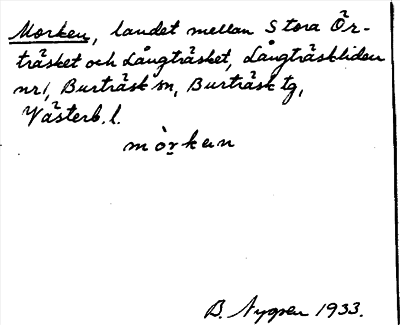 Morken, landet mellan Stora Ör-
träsket och Långträsket, Långträskliden
nr 1, Burträsk sn, Burträsk tg,
Västerb. l.
mòrkan
B. Nygren 1933.